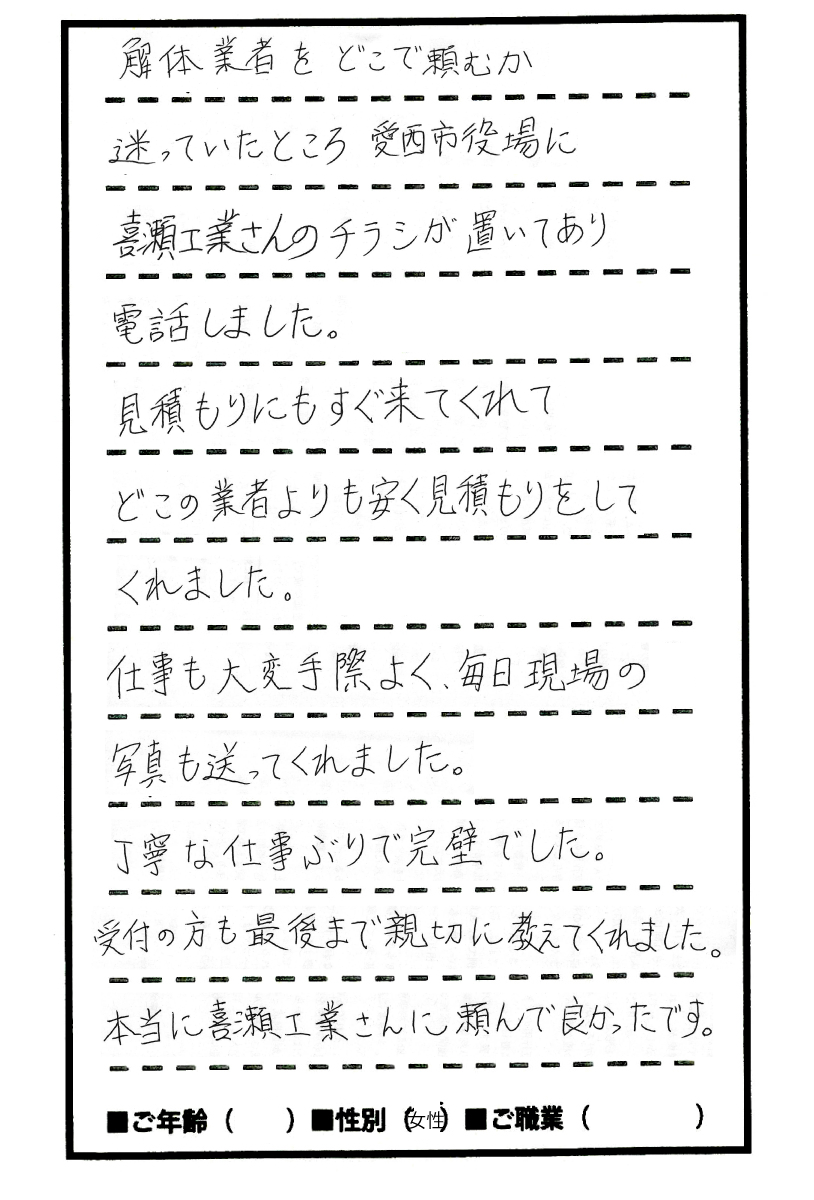 解体業者をどこで頼むか
迷っていたところ 愛西市役場に
喜瀬工業さんのチラシが置いてあり
電話しました。
見積もりにもすぐ来てくれて
どこの業者よりも安く見積もりをして
くれました。
仕事も大変手際よく、毎日現場の
写真も送ってくれました。
丁寧な仕事ぶりで完壁でした。
受付の方も最後まで親切に教えてくれました。
本当に喜瀬工業さんに頼んで良かったです。
■ご年齢（　　）■性別（女性）■ご職業（　　　　）